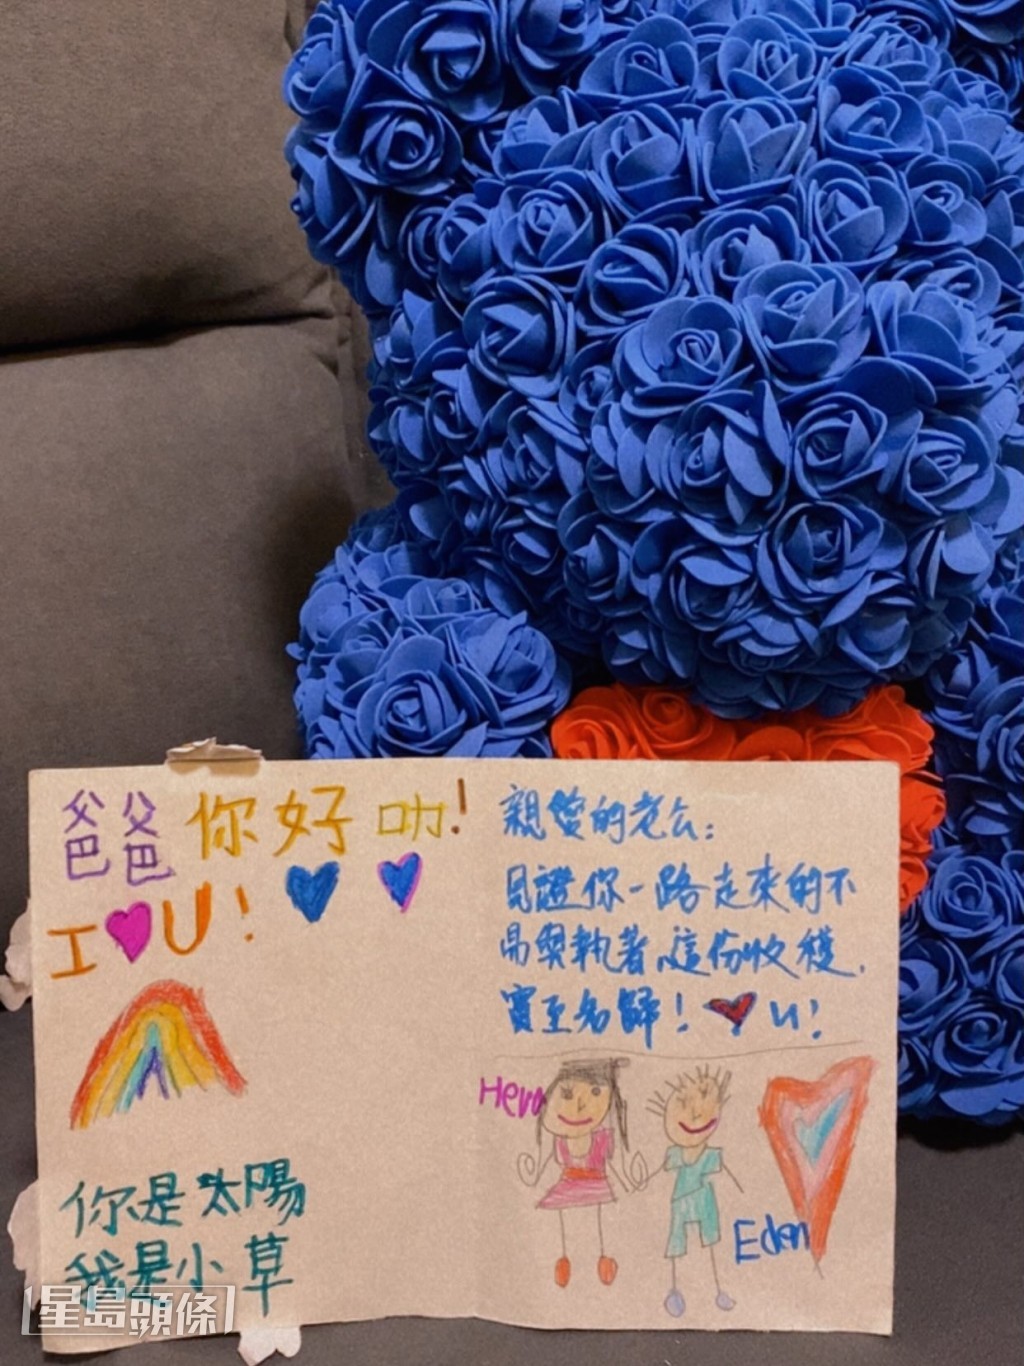 爸爸你好叻!
I U!
你是太陽
我是小草
親愛的老公:
見證你一路走來的不
易與執著,這份收穫,
實至名歸! U!
Hera
Eden
星島頭條